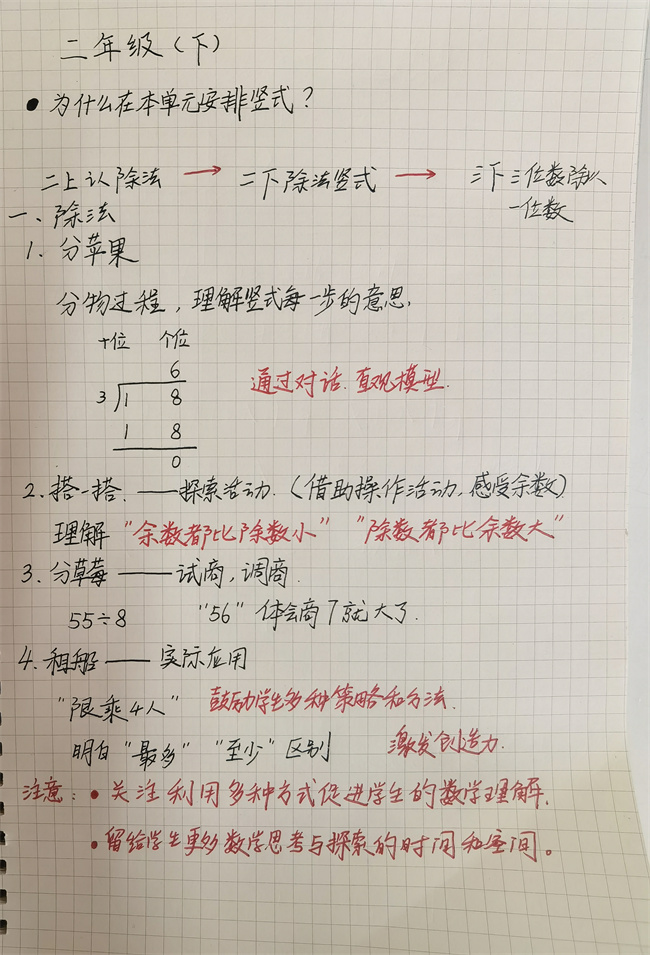 二年级（下）
● 为什么在本单元安排竖式？
二上认除法 → 二下除法竖式 → 三下三位数除以
一位数
一、除法
1. 分苹果
分物过程，理解竖式每一步的意思.
十位 个位
6
3 1 8
通过对话.直观模型.
1 8
0
2. 搭一搭. ——探索活动.（借助操作活动，感受余数）
理解 “余数都比除数小” “除数都比余数大”
3. 分草莓 —— 试商，调商.
55÷8 “56” 体会商7就大了.
4. 租船 —— 实际应用
“限乘4人” 鼓励学生多种策略和方法.
明白“最多” “至少”区别 激发创造力.
注意：• 关注利用多种方式促进学生的数学理解.
• 留给学生更多数学思考与探索的时间和空间。